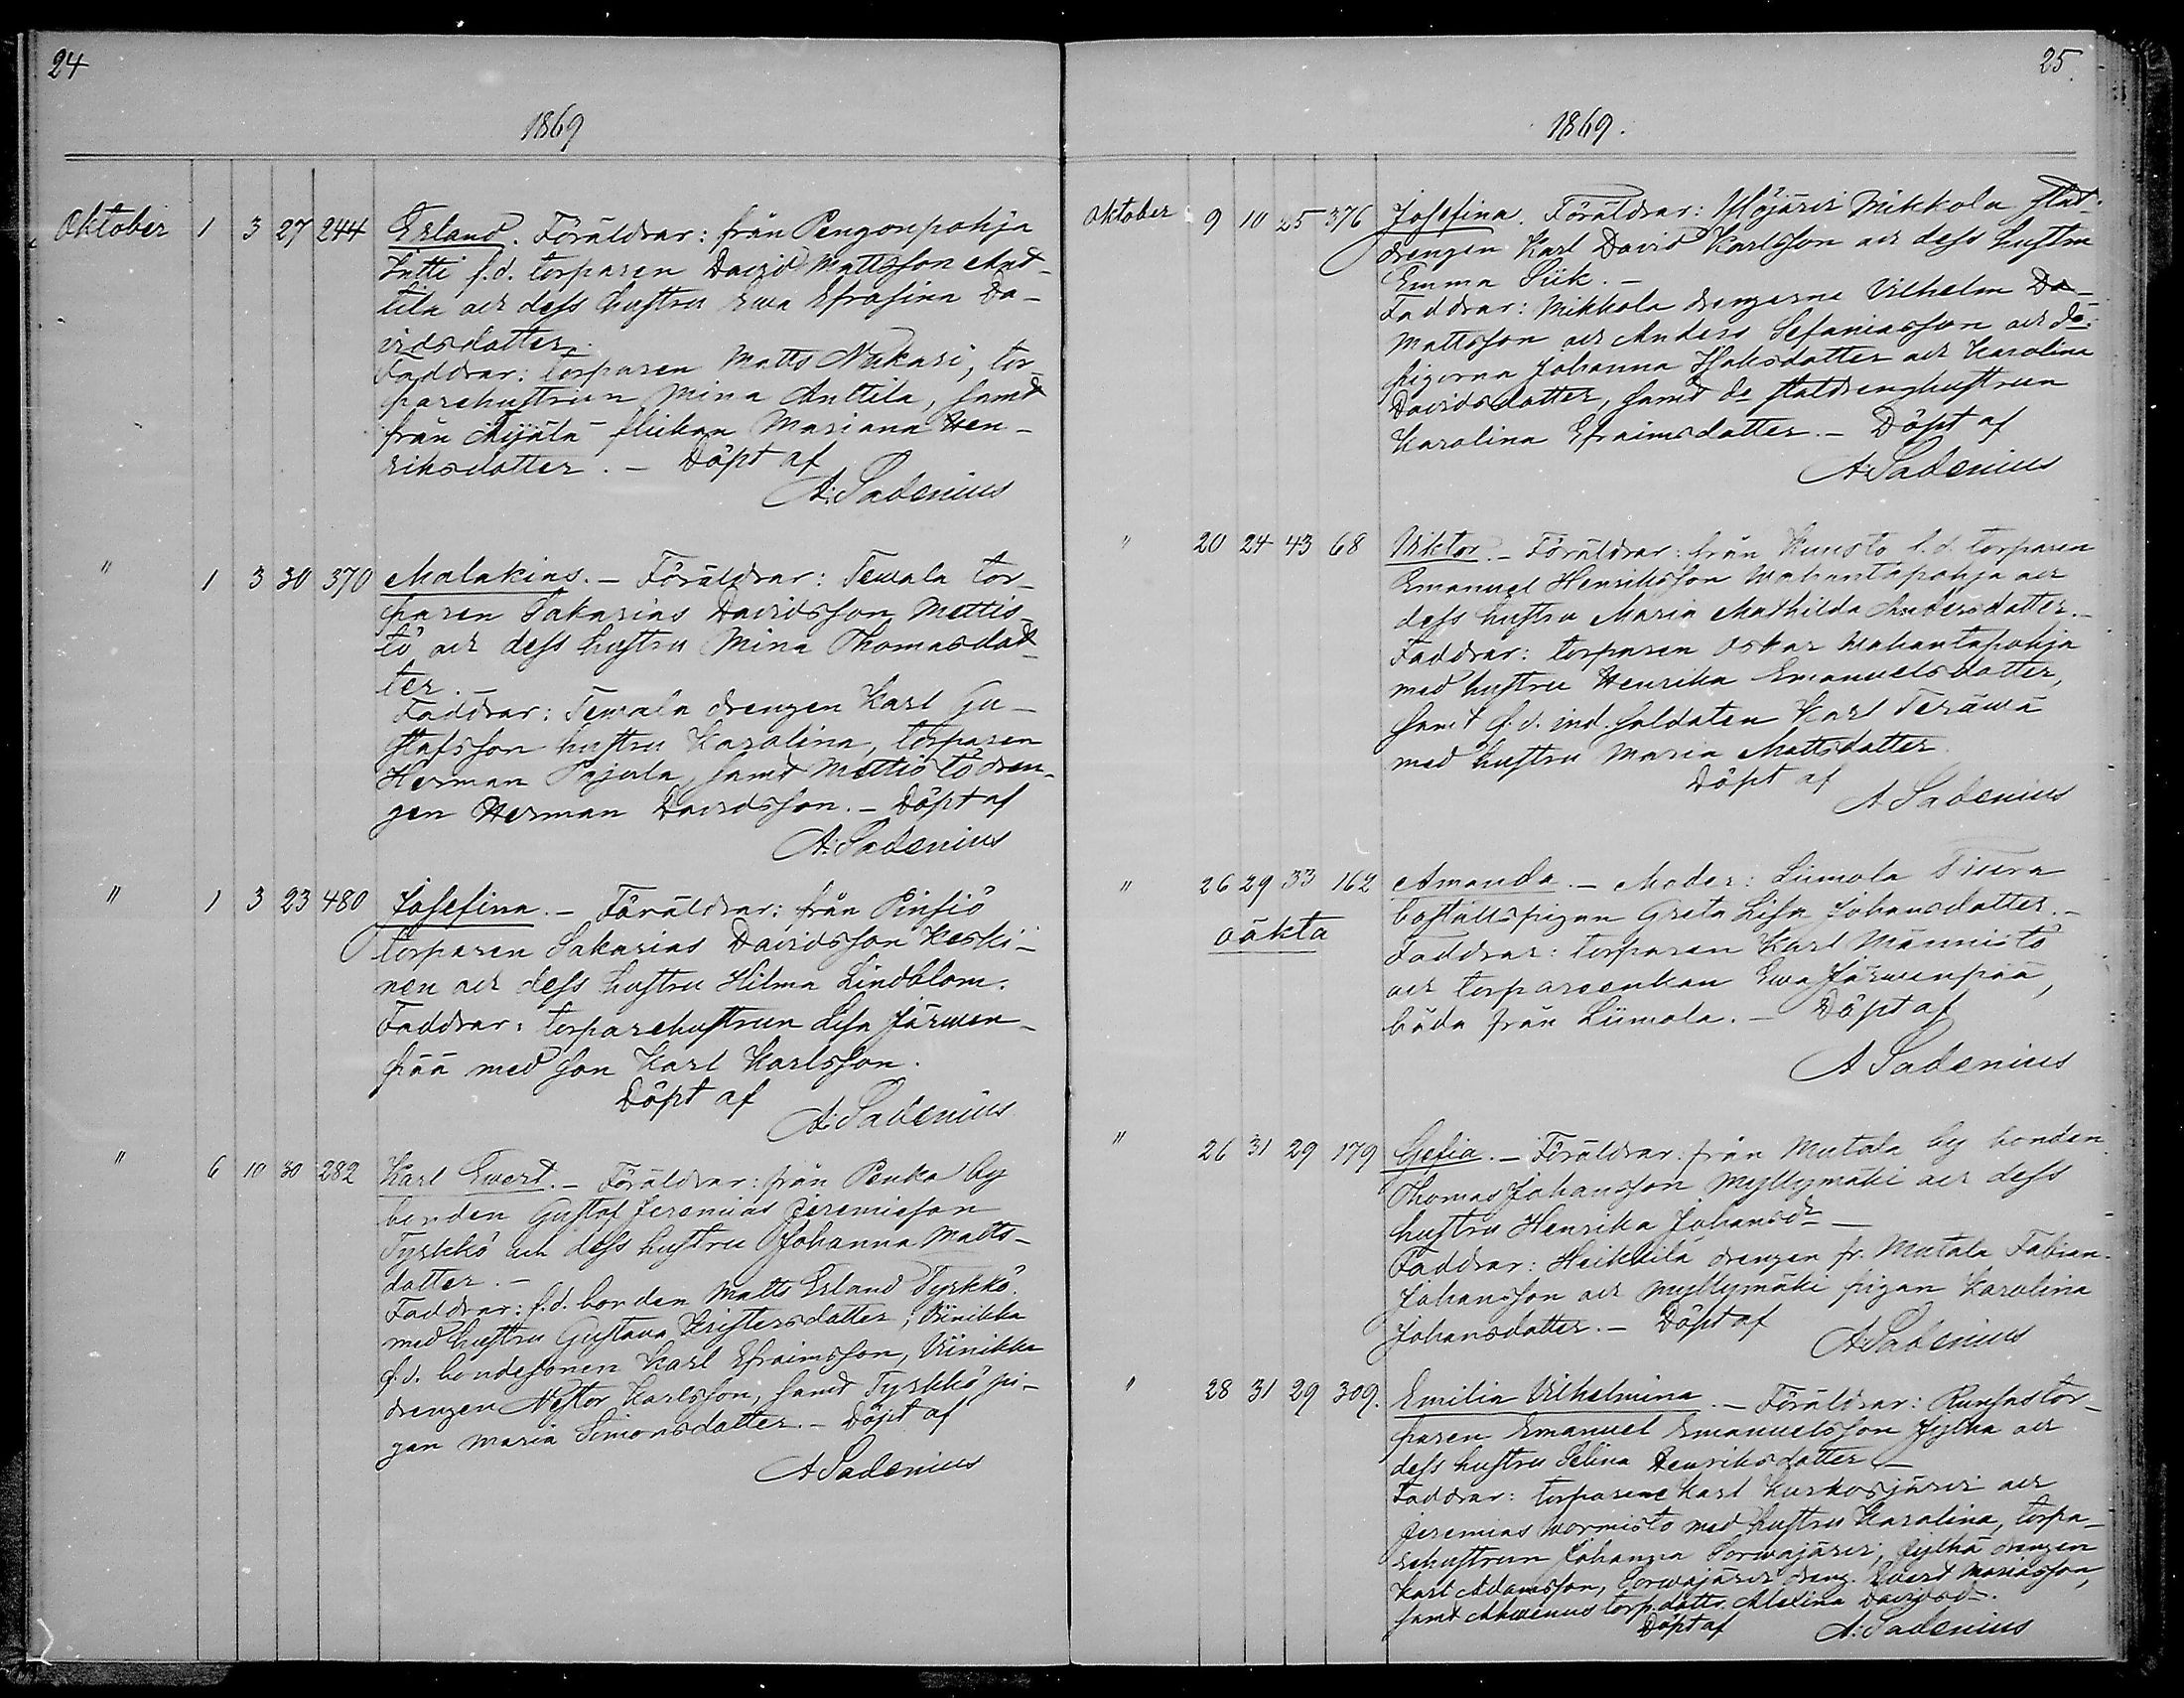 24
1869
Oktober 1 3 27 244 Erland. Föräldrar: från Pengonpohja
Intti f.d. torparen David Mattsson Ant-
tila och dess hustru Ewa Efrosina Da-
vidsdotter.
Faddrar: torparen Matts Nukari, tor-
parehustrun Mina Anttila, samt
från flickan Mariana Hen-
riksdotter. - Döpt af
A: Sadenius
" 1 3 30 370 Malakias. - Föräldrar: Tewala tor-
paren Sakarias Davidsson Mettis-
tö och dess hustru Mina Thomasdot-
ter. -
Faddrar: Tewala drengen Karl Gu-
stafsson hustru Karolina, torparen
Herman Pajula, samt Mettistö dren-
gen Herman Davidsson. - Döpt af
A: Sadenius
" 1 3 23 480 Josefina. - Föräldrar: från Pinsiö
torparen Sakarias Davidsson Keski-
nen och dess hustru Hilma Lindblom.
Faddrar: torparehustrun Lisa Järwen-
pää med son Karl Karlsson.
Döpt af
A: Sadenius
" 6 10 30 282 Karl Ewert. - Föräldrar: från Penka by
bonden Gustaf Jeremias Jeremiasson
Tyrkkö och dess hustru Johanna Matts-
dotter. -
Faddrar: f.d. bonden Matts Erland Tyrkkö
med hustru Gustava Kristersdotter, Viinikka
f.d. bondesonen Karl Efraimsson, Viinikka
drengen Nestor Karlsson, samt Tyrkkö pi-
gan Maria Simonsdotter. - Döpt af
A Sadenius
25.
1869.
Oktober 9 10 25 376 Josefina. Föräldrar: Ylöjärvi Mikkola stat-
drengen Karl David Karlsson och dess hustru
Emma Siik. -
Faddrar: Mikkola drengarne Vilhelm Da-
Mattsson och Anders Sefaniasson och do.
pigorna Johanna Isaksdotter och Karolina
Davidsdotter, samt do statdrenghustrun
Karolina Efraimsdotter. - Döpt af
A: Sadenius
" 20 24 43 68 Viktor. - Föräldrar: från Kunsto f.d. torparen
Emanuel Henriksson Wahantapohja och
dess hustru Maria Mathilda Andersdotter. -
Faddrar: torparen Oskar Wahantapohja
med hustru Henrika Emanuelsdotter,
samt f.d. ind. soldaten Karl Teräwä
med hustru Maria Mattsdotter.
Döpt af
A Sadenius
" 26 29 33 162 Amanda. - Moder: Liimola
boställspigan Greta Lisa Johansdotter. -
oäkta
Faddrar: torparen Karl Männistö
och torparenkan Ewa Järwenpää,
båda från Liimola. - Döpt af
A Sadenius
" 26 31 29 179 Sefia. - Föräldrar: från Mutala by bonden
Thomas Johansson Myllymäki och dess
hustru Henrika Johansdr. -
Faddrar: Heikkilä drengen fr. Mutala Fabian
Johansson och Myllymäki pigan Karolina
Johansdotter. - Döpt af
A: Sadenius
" 28 31 29 309. Emilia Vilhelmina. - Föräldrar: Runsas tor-
paren Emanuel Emanuelsson Jylhä och
dess hustru Selina Henriksdotter. -
Faddrar: torparene Karl Kurkosjärvi och
Jeremias Wormisto med hustru Karolina, torpa-
rehustrun Johanna Sorwajärvi, Jylhä drengen
Karl Adamsson, Sorwajärvi dreng. Evert Mariasson,
samt Ahvenus torp.dottr. Alexina Davidsdr.
Döpt af
A: Sadenius